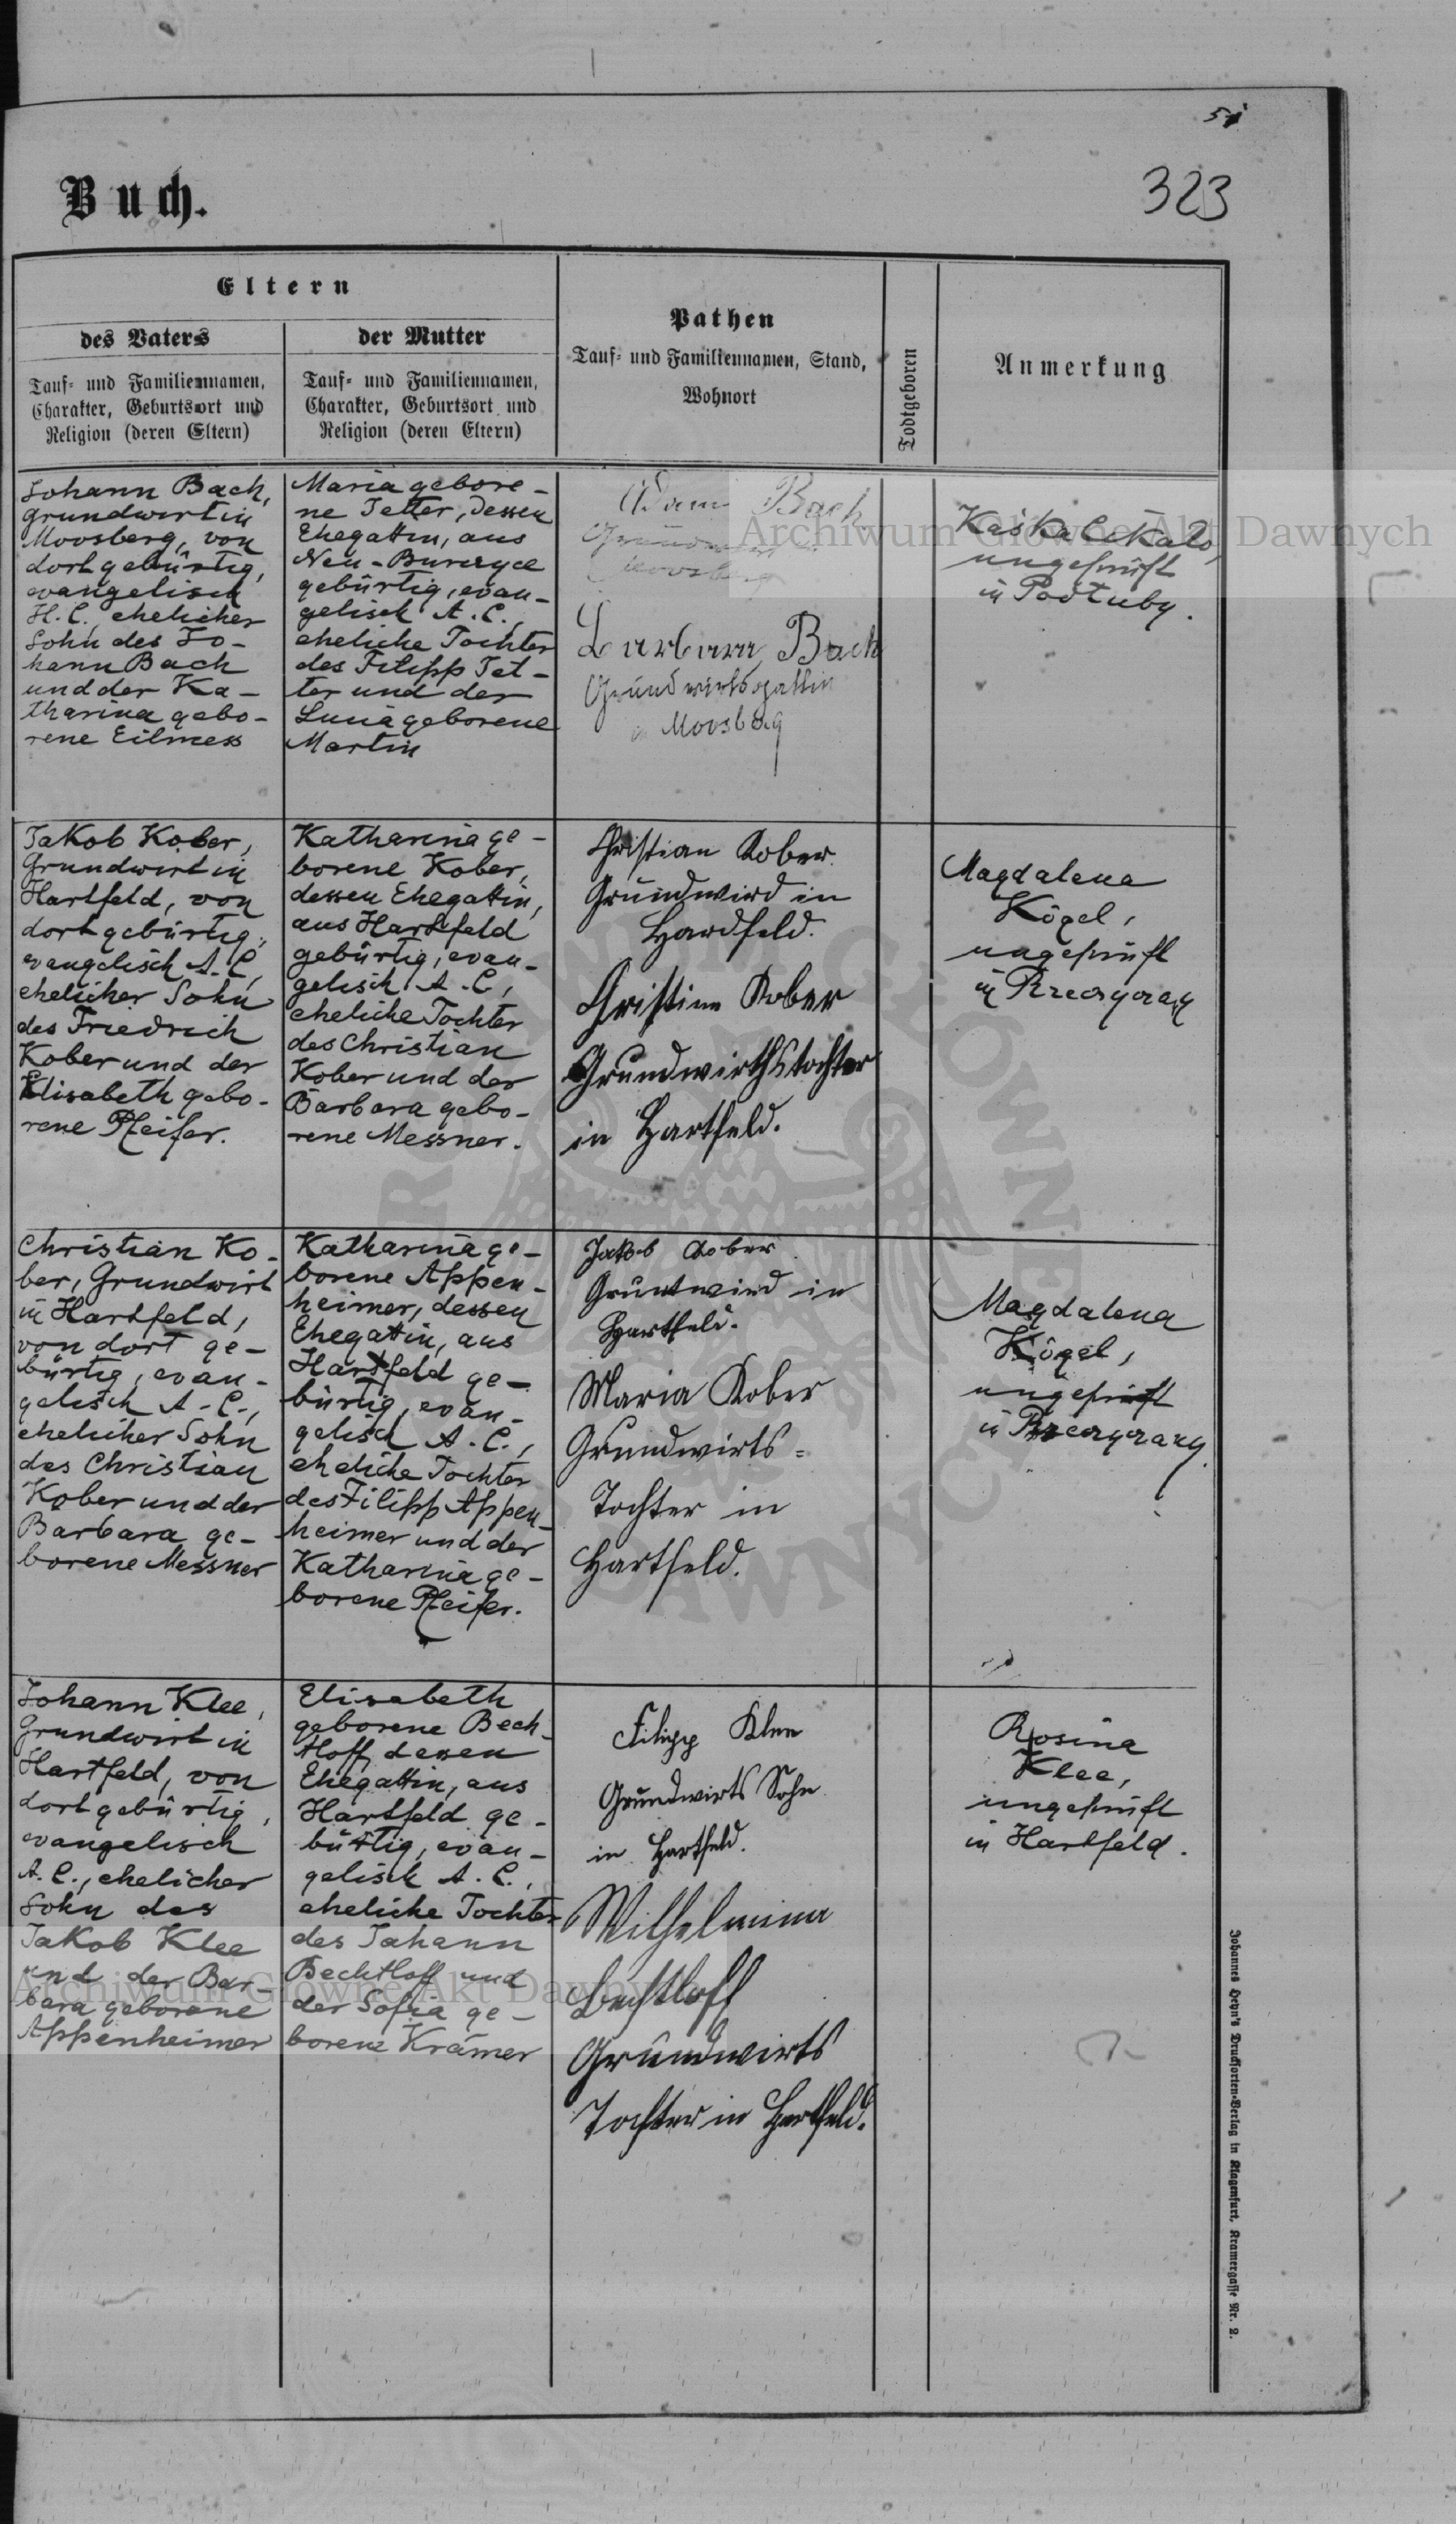 51
323
Buch.
Eltern
des Vaters
Tauf- und Familiennamen,
Charakter, Geburtsort und
Religion (deren Eltern)
der Mutter
Tauf- und Familiennamen,
Charakter, Geburtsort und
Religion (deren Eltern)
Pathen
Tauf- und Familiennamen, Stand,
Wohnort
Todtgeboren
Anmerkung
Johann Bach,
Grundwirt in
Moosberg, von
dort gebürtig,
evangelisch
H. C., ehelicher
Sohn des Jo-
hann Bach
und der Ka-
tharina gebo-
rene Eilmess
Maria gebore-
ne Tetter, dessen
Ehegattin, aus
Neu-
gebürtig, evan-
gelisch A. C.,
eheliche Tochter
des Filipp Tet-
ter und der
Lucia geborene
Martin
Adam Bach
Grundwirt in
Moosberg
Barbara Bach
Grundwirtsgattin
in Moosberg
ungeprüft
in
Jakob Kober,
Grundwirt in
Hartfeld, von
dort gebürtig,
evangelisch A. C.,
ehelicher Sohn
des Friedrich
Kober und der
Elisabeth gebo-
rene Pfeifer.
Katharina ge-
borene Kober,
dessen Ehegattin,
aus Hartfeld
gebürtig, evan-
gelisch A. C.,
eheliche Tochter
des Christian
Kober und der
Barbara gebo-
rene Messner.
Christian Kober
Grundwird in
Hardfeld.
Christine Kober
Grundwirthstochter
in Hartfeld.
Magdalena
Kögel,
ungeprüft
in
Christian Ko-
ber, Grundwirt
in Hartfeld,
von dort ge-
bürtig, evan-
gelisch A. C.,
ehelicher Sohn
des Christian
Kober und der
Barbara ge-
borene Messner
Katharina ge-
borene Appen-
heimer, dessen
Ehegattin, aus
Hartfeld ge-
bürtig, evan-
gelisch A. C.,
eheliche Tochter
des Filipp Appen-
heimer und der
Katharina ge-
borene Pfeifer.
Jakob Kober
Gruntwird in
Hartfeld.
Maria Kober
Grundwirts=
Tochter in
Hartfeld.
Magdalena
Kögel,
ungeprüft
in
Johann Klee,
Grundwirt in
Hartfeld, von
dort gebürtig,
evangelisch
A. C., ehelicher
Sohn des
Jakob Klee
und der Bar-
bara geborene
Appenheimer
Elisabeth
geborene Bech-
tloff, dessen
Ehegattin, aus
Hartfeld ge-
bürtig, evan-
gelisch A. C.,
eheliche Tochter
des Johann
Bechtloff und
der Sofia ge-
borene Krämer
Filipp Klee
Grundwirts Sohn
in Hartfeld.
Wilhelmina
Bechtloff
Grundwirts
Tochter in Hartfeld.
Rosina
Klee,
ungeprüft
in Hartfeld.
Johannes Heyn's Drucksorten-Verlag in Klagenfurt, Kramergasse Nr. 2.
Archiwum Główne Akt Dawnych
Archiwum Główne Akt Dawnych